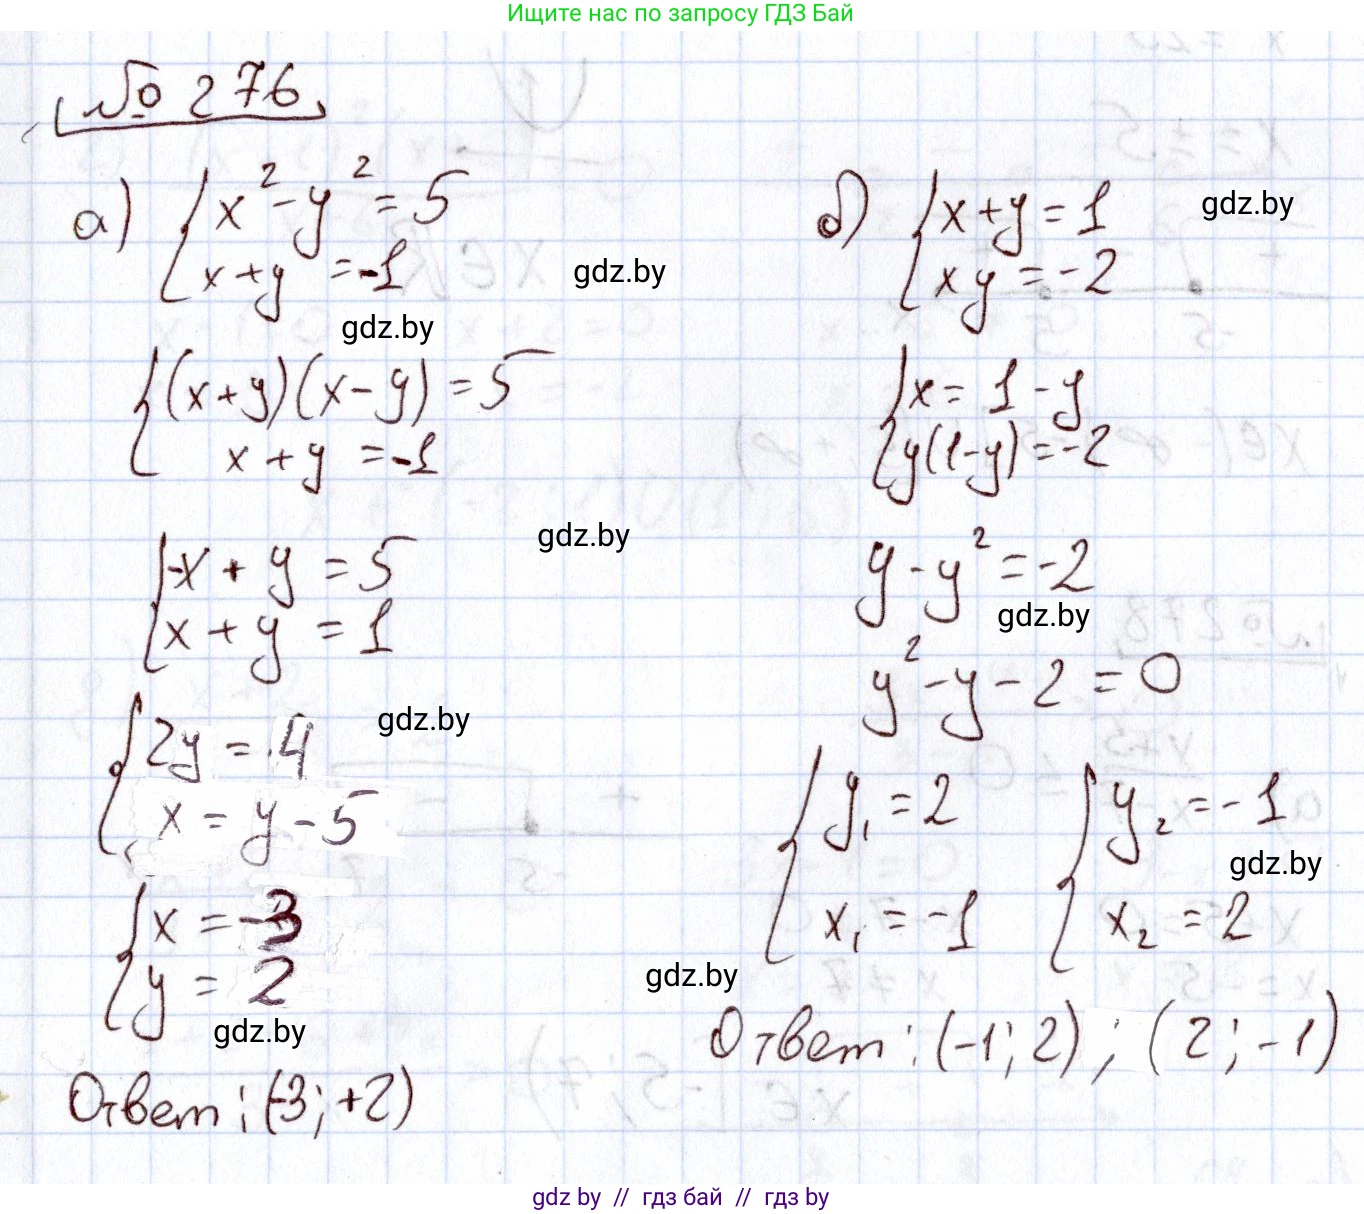 Ищите нас по запросу ГДЗ Бай
№ 276
а) { x² - y² = 5
x + y = -1
gdz.by
gdz.by
{ (x + y)(x - y) = 5
x + y = -1
gdz.by
{ -x + y = 5
x + y = 1
{ 2y = 4
x = y - 5
gdz.by
{ x = -3
y = 2
gdz.by
Ответ: (-3; +2)
б) { x + y = 1
xy = -2
gdz.by
{ x = 1 - y
y(1 - y) = -2
y - y² = -2
gdz.by
y² - y - 2 = 0
{ y₁ = 2
x₁ = -1
{ y₂ = -1
x₂ = 2
gdz.by
gdz.by
Ответ: (-1; 2); (2; -1)
gdz by // гдз бай // гдз by